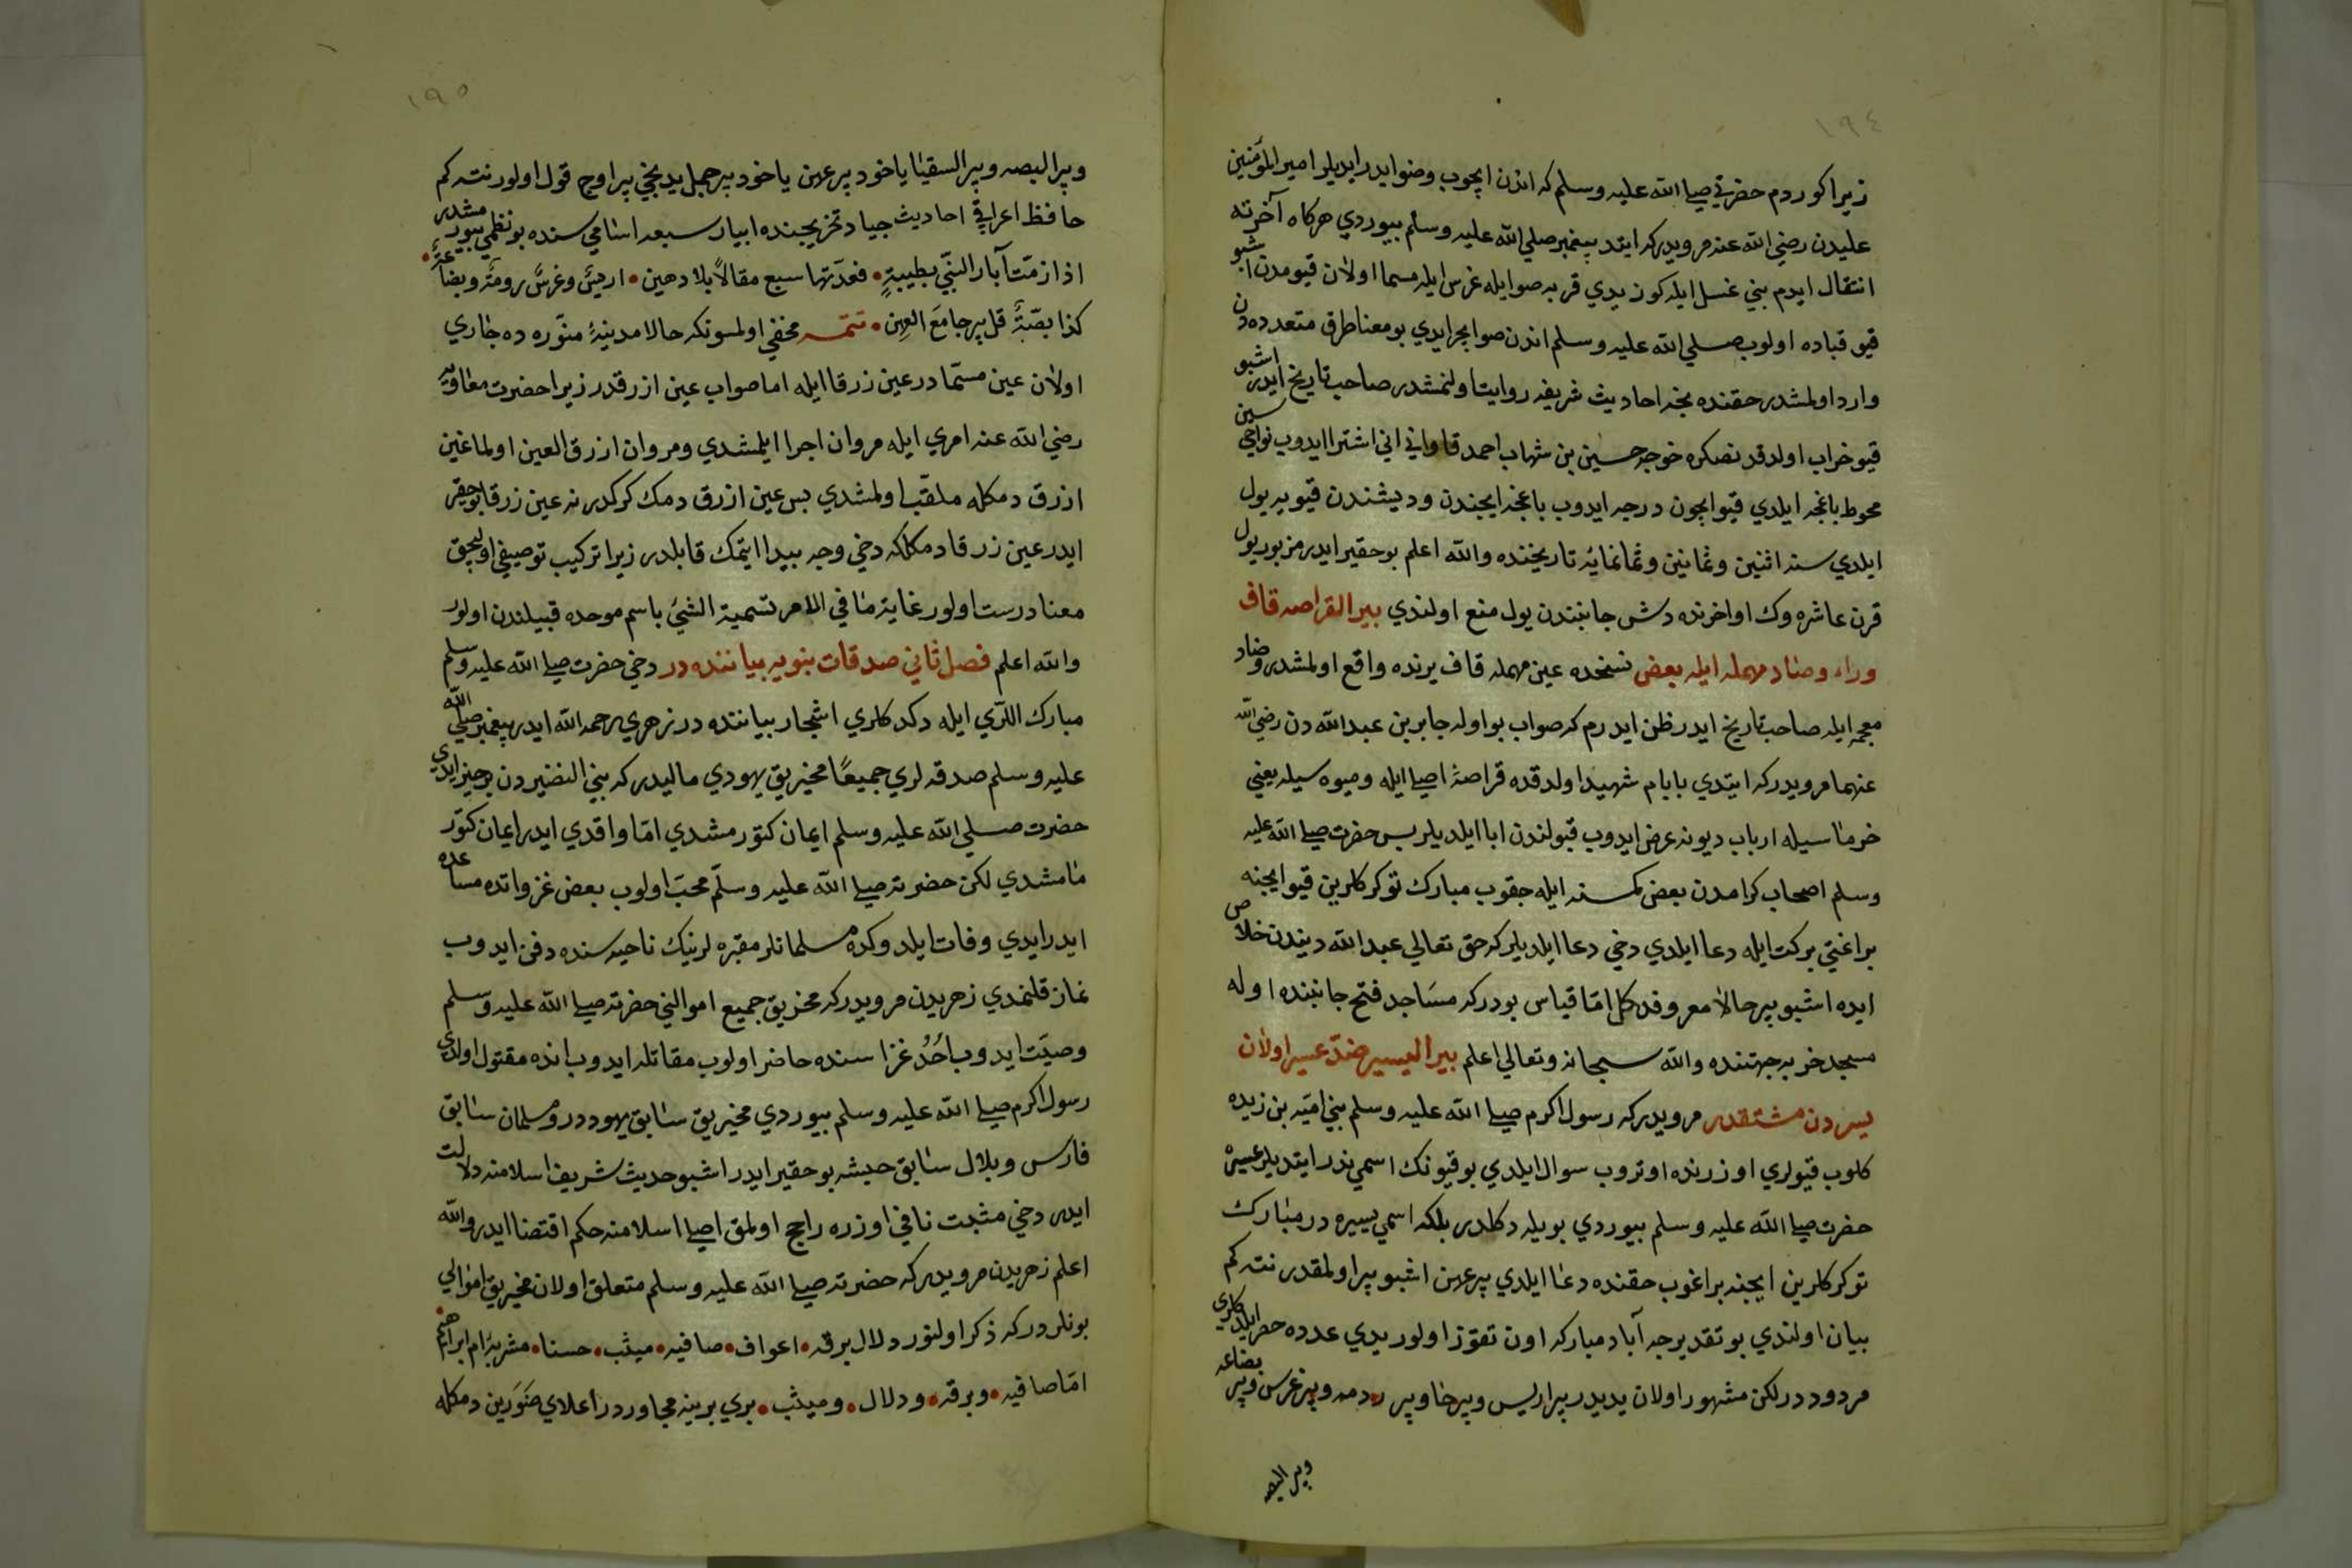 ١٩٤
زيرا كوردم حضرتي صلي الله عليه وسلم كه اندن ايچوب وضو ايدر ايديلر امير المؤمنين
عليدن رضي الله عنه مرويدر كه ايتدي پيغمبر صلي الله عليه وسلم بيوردي هركاه آخرته
انتقال ايدم بني غسل ايله كوز يدي قربه صو ايله غرس ايله مسما اولان قيومدن اشبو
قيو قباده اولوب صلي الله عليه وسلم اندن صو ايچر ايدي بو معنا طرق متعدده دن
وارد اولمشدر حقنده نجه احاديث شريفه روايت اولنمشدر صاحب تاريخ ايدر اشبو
قيو خراب اولدقدنصكره خوجه حسين بن شهاب احمد قاواني اني اشترا ايدوب نواحي سين
محوط باغچه ايلدي قيو ايچون درجه ايدوب باغچه ايچندن وديشندن قيويه يول
ايلدي سنه اثنين وثمانين وثمانمائه تاريخنده والله اعلم بو حقير ايدر مزبور يول
قرن عاشره وك اواخرنده دش جانبندن يول منع اولندي بير القراصه قاف
وراء وصاد مهمله ايله بعض نسخده عين مهمله قاف يرنده واقع اولمشدر وضاد
معجمه ايله صاحب تاريخ ايدر ظن ايدرم كه صواب بو اوله جابر بن عبد الله دن رضي الله
عنهما مرويدر كه ايتدي بابام شهيد اولدقده قراصهٔ اصلي ايله وميوه سيله يعني
خرماسيله ارباب ديونه عرض ايدوب قبولندن ابا ايلديلر پس حضرت صلي الله عليه
وسلم اصحاب كرامدن بعض كمسنه ايله چقوب مبارك توكركلرين قيو ايچنه
براغتي بركت ايله دعا ايلدي دخي دعا ايلديلر كه حق تعالي عبد الله ديندن خلاص
ايده اشبو بير حالا معروف دكل اما قياس بودر كه مساجد فتح جانبنده اوله
مسجد خربه جهتنده والله سبحانه وتعالي اعلم بير العيسير ضد عسير اولان
يسردن مشتقدر مرويدر كه رسول اكرم صلي الله عليه وسلم بني اميه بن زيده
كلوب قيولري اوزرنده اوتروب سوال ايلدي بو قيونك اسمي ندر ايتديلر عسيره
حضرت صلي الله عليه وسلم بيوردي بويله دكلدر بلكه اسمي يسيره در مبارك
توكركلرين ايچنه براغوب حقنده دعا ايلدي بير عهن اشبو بير اولمقدر نته كم
بيان اولندي بو تقديرجه آباد مباركه اون تقوز اولور يدي عدده حصر ايلدكلري
مردود در لكن مشهور اولان يديدر بير اريس وبير حا وبير رومه وبير غرس وبير بضاعه
وبير البصه
١٩٥
وبير البصه وبير السقيا ياخود بير عهن ياخود بير جمل يدنجي بير اوج قول اولور نته كم
حافظ اعراقي احاديث جياد تخريجنده ابيار سبعه اسامي سنده بو نظمي بيورمشدر
اذا زمت آبار النبي بطيبةٍ • فعدتها سبع مقالاً بلا دهين • اريسٌ وغرسٌ رومةٌ وبضاعةٌ •
كذا بصّةٌ قل بير جامع العهن • تتمه مخفي اولمسونكه حالا مدينهٔ منوره ده جاري
اولان عين مسما در عين زرقا ايله اما صواب عين ازرقدر زيرا حضرت معاويه
رضي الله عنه امري ايله مروان اجرا ايلمشدي ومروان ازرق العين اولماغين
ازرق دمكله ملقب اولمشدي پس عين ازرق دمك كركدر نه عين زرقا بو حقير
ايدر عين زرقا دمكلكه دخي وجه پيدا ايتمك قابلدر زيرا تركيب توصيفي اولىجق
معنا درست اولور غاية ما في الامر تسمية الشئ باسم موحده قبيلندن اولور
والله اعلم فصل ثاني صدقات بنويه بياننده در دخي حضرت صلي الله عليه وسلم
مبارك اللري ايله دكدكلري اشجار بياننده در زهري رحمه الله ايدر پيغمبر صلي الله
عليه وسلم صدقه لري جميعًا مخيريق يهودي ماليدر كه بني النضيردن بر حبر ايدي
حضرت صلي الله عليه وسلم ايمان كتورمشدي اما واقدي ايدر ايمان كتور
مامشدي لكن حضرته صلي الله عليه وسلم محب اولوب بعض غزواتده مساعده
ايدر ايدي وفات ايلدوكده مسلمانلر مقبره لرينك ناحيه سنده دفن ايدوب
نماز قلنمدي زهريدن مرويدر كه مخريق جميع اموالني حضرته صلي الله عليه وسلم
وصيت ايدوب اُحُد غزاسنده حاضر اولوب مقاتله ايدوب انده مقتول اولدي
رسول اكرم صلي الله عليه وسلم بيوردي مخيريق سابق يهوددر ومسلمان سابق
فارس وبلال سابق حبشه بو حقير ايدر اشبو حديث شريف اسلامنه دلالت
ايدر دخي مثبت نافي اوزره راجح اولمق اصلي اسلامنه حكم اقتضا ايدر والله
اعلم زهريدن مرويدر كه حضرته صلي الله عليه وسلم متعلق اولان مخيريق اموالي
بونلردر كه ذكر اولنور دلال برقه • اعواف • صافيه • ميثب • حسنا • مشربهٔ ام ابراهيم •
اما صافيه • وبرقه • ودلال • وميثب • بري برينه مجاور در اعلاي صَوَرَين دمكله